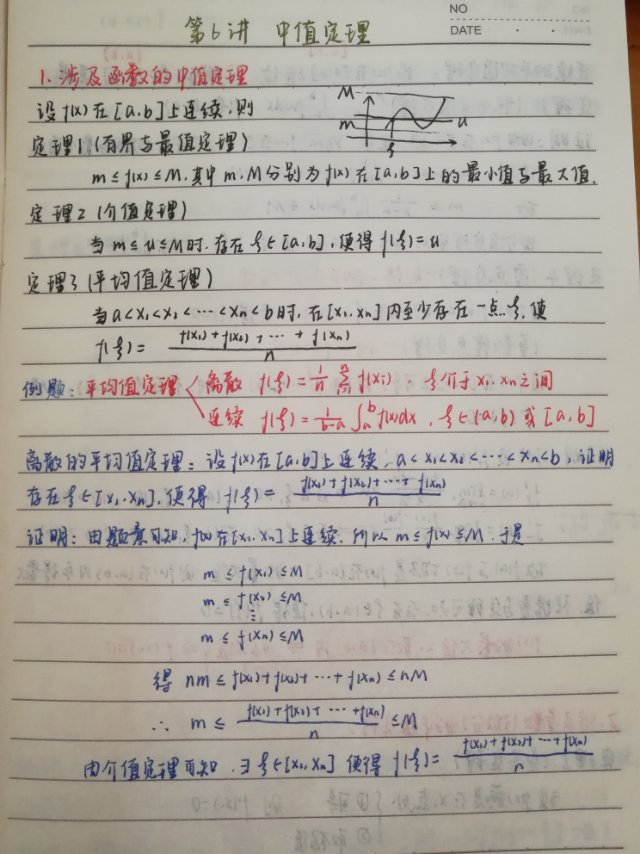 第6讲 中值定理
NO
DATE · ·
1. 涉及函数的中值定理
设f(x)在[a,b]上连续,则
M
m
u
ξ
定理1(有界与最值定理)
m≤f(x)≤M,其中m,M分别为f(x)在[a,b]上的最小值与最大值.
定理2(介值定理)
当m≤u≤M时,存在ξ∈[a,b],使得f(ξ)=u
定理3(平均值定理)
当a<x₁<x₂<…<xₙ<b时,在[x₁,xₙ]内至少存在一点ξ,使
f(ξ)= (f(x₁)+f(x₂)+…+f(xₙ))/n
例题:平均值定理 离散 f(ξ)=1/n ∑ f(xi),ξ介于x₁,xₙ之间
连续 f(ξ)=1/(b-a) ∫ₐᵇ f(x)dx,ξ∈(a,b)或[a,b]
离散的平均值定理:设f(x)在[a,b]上连续,a<x₁<x₂<…<xₙ<b,证明
存在ξ∈[x₁,xₙ],使得f(ξ)= (f(x₁)+f(x₂)+…+f(xₙ))/n
证明:由题意可知,f(x)在[x₁,xₙ]上连续,所以m≤f(x)≤M,于是
m≤f(x₁)≤M
m≤f(x₂)≤M
⋮
m≤f(xₙ)≤M
得 nm≤f(x₁)+f(x₂)+…+f(xₙ)≤nM
∴ m≤ (f(x₁)+f(x₂)+…+f(xₙ))/n ≤M
由介值定理可知,∃ξ∈[x₁,xₙ]使得f(ξ)= (f(x₁)+f(x₂)+…+f(xₙ))/n